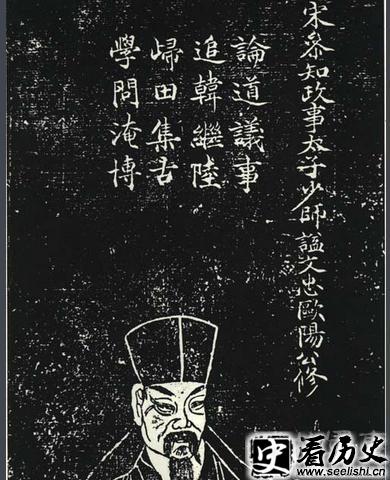 宋參知政事太子少師謚文忠歐陽公修
論道議事
追韓繼陸
歸田集古
學問淹博
史看历史
www.seelishi.cn